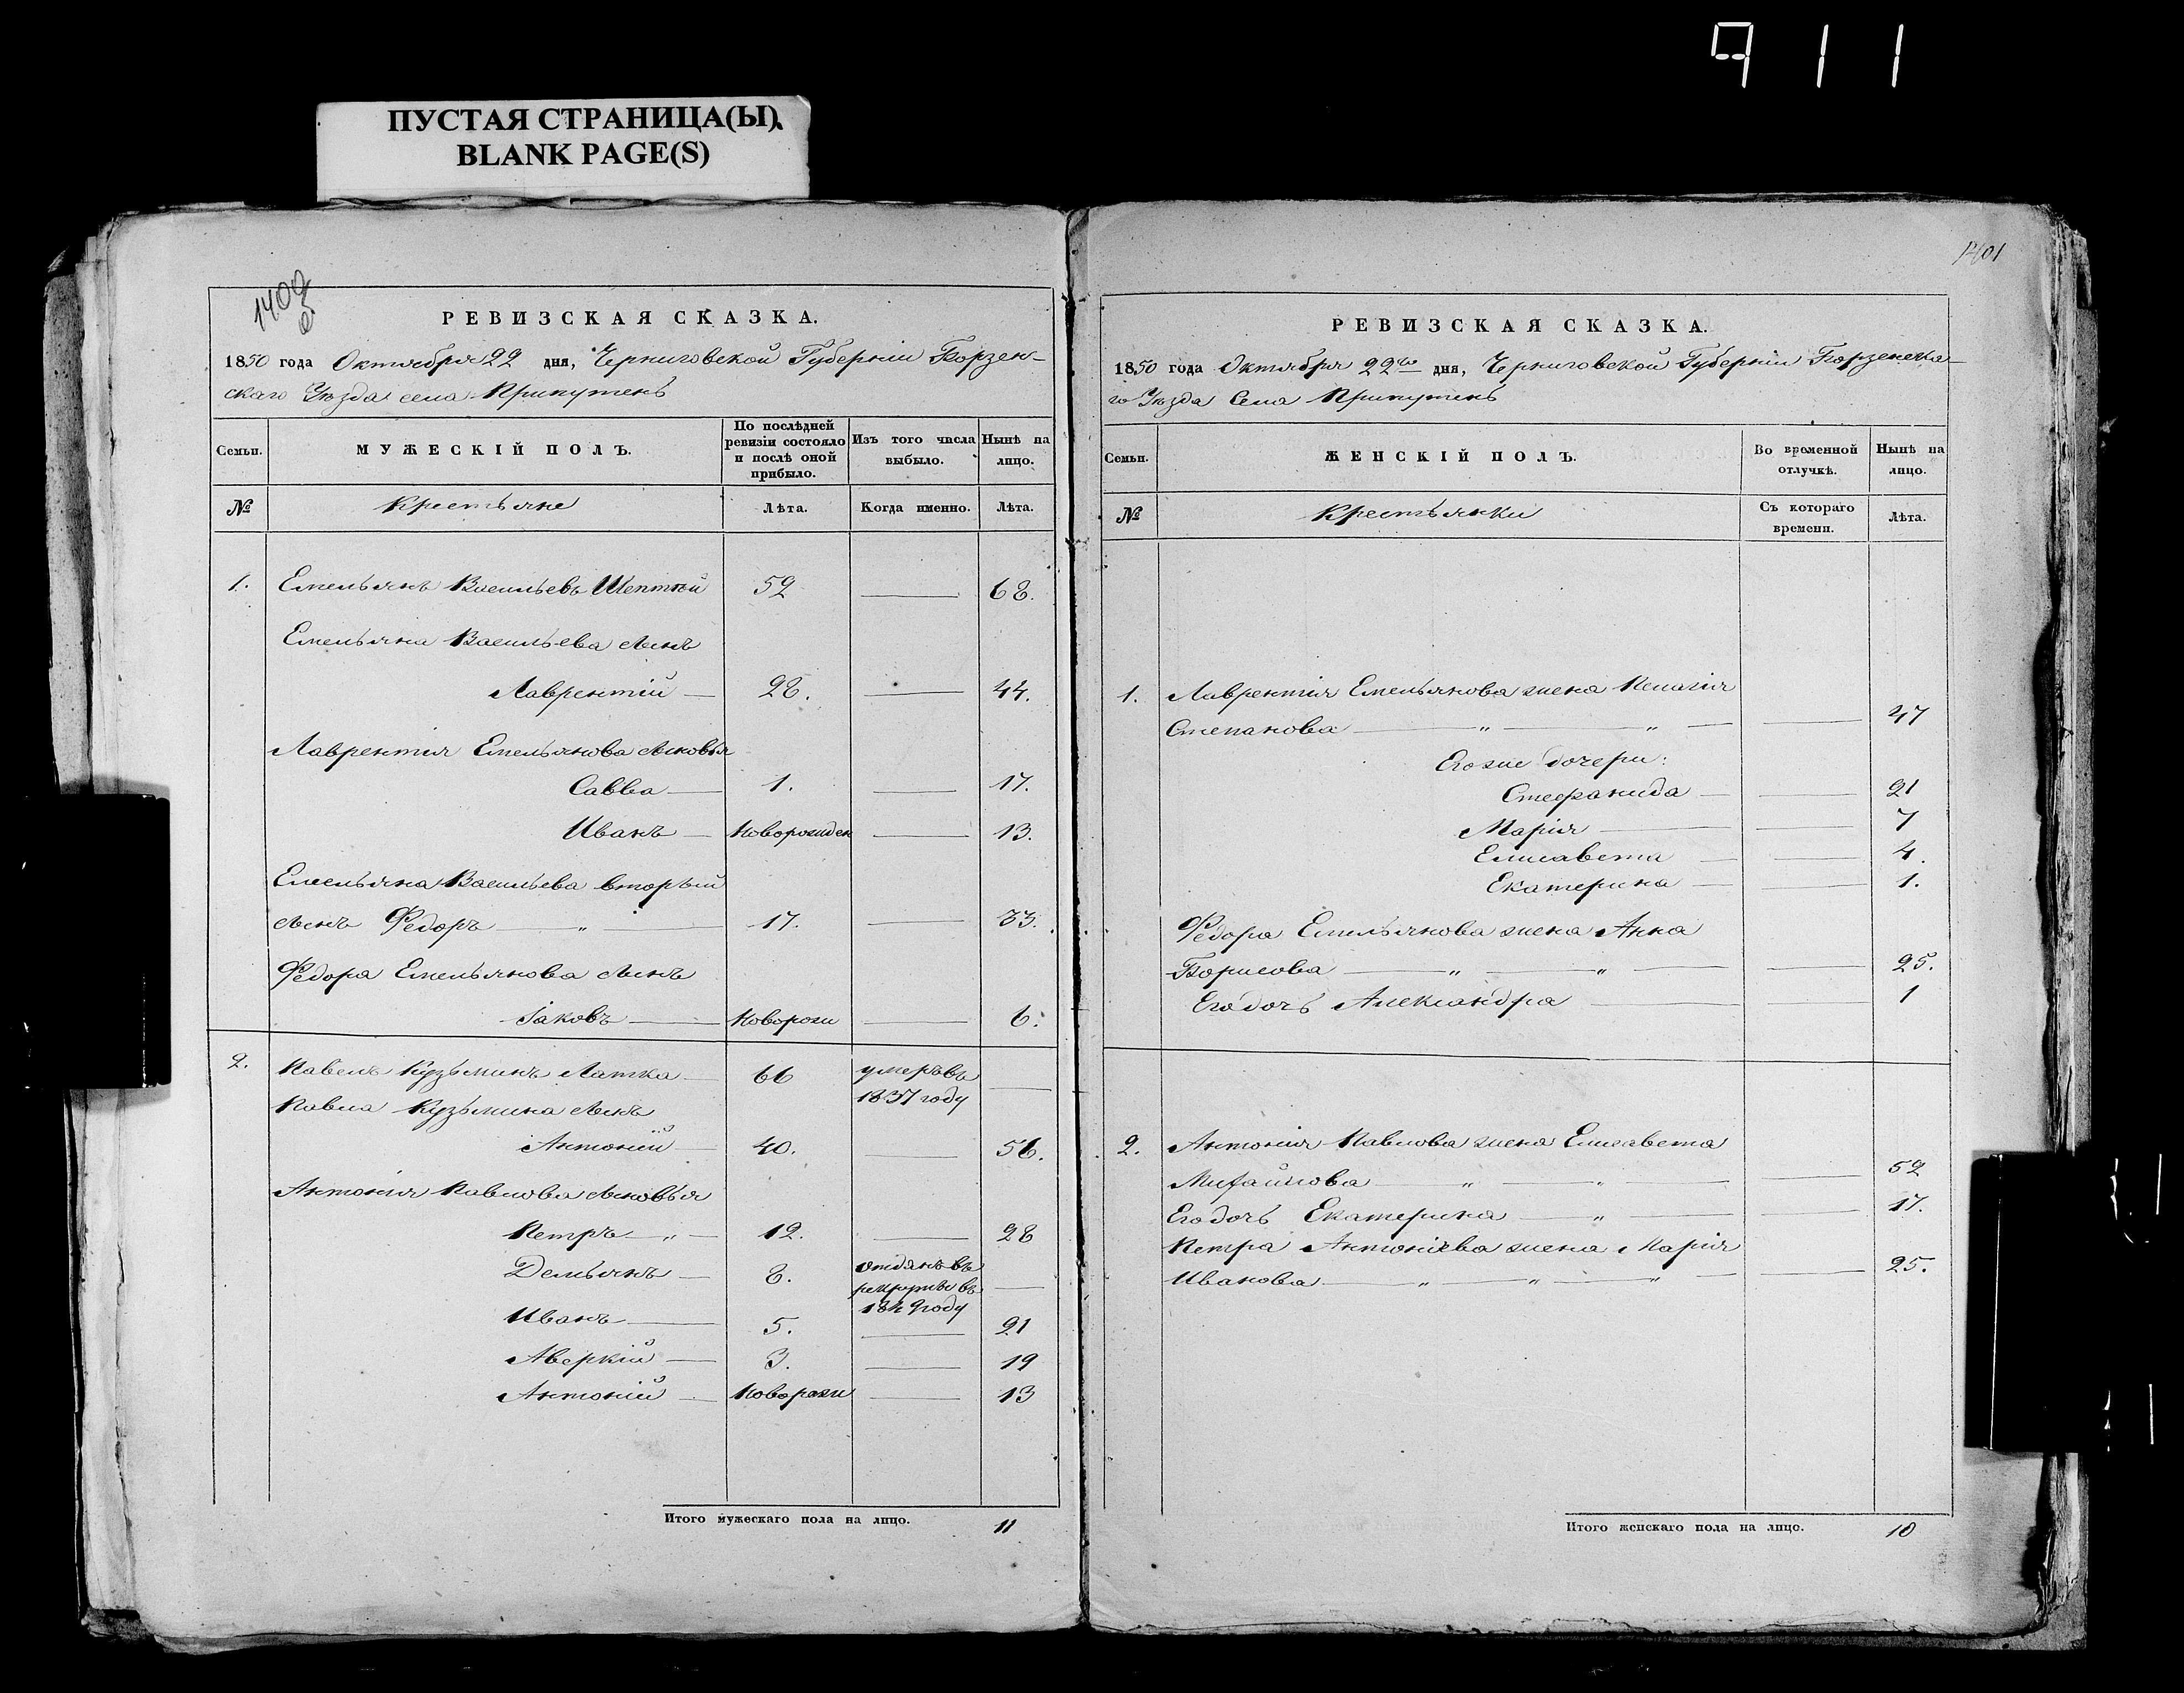 911
ПУСТАЯ СТРАНИЦА(Ы).
BLANK PAGE(S)
1400
РЕВИЗСКАЯ СКАЗКА.
1850 года Октября 22 дня, Черниговской Губерніи Борзен-
скаго Уѣзда села Припутень
Семьи.
МУЖЕСКІЙ ПОЛЪ.
По послѣдней ревизіи состояло и послѣ оной прибыло.
Изъ того числа выбыло.
Нынѣ на лицо.
№ Крестьяне Лѣта. Когда именно. Лѣта.
1. Емельянъ Васильевъ Шептій 52 — 68.
Емельяна Васильева сынъ
Лаврентій — 28. — 44.
Лаврентія Емельянова сыновья
Савва — 1. — 17.
Иванъ — Новорожден — 13.
Емельяна Васильева вторый
сынъ Федоръ — „ — 17. — 33.
Федора Емельянова сынъ
Іаковъ —Новорож — 6.
2. Павелъ Кузьминъ Латка — 66 умеръ въ —
1837 году
Павла Кузьмина сынъ
Антоній — 40. — 56.
Антонія Павлова сыновья
Петръ — „ — 12. — 28
Демьянъ — 8. отданъ въ —
рекруты въ
1849 году
Иванъ — 5. — 21
Аверкій — 3. — 19
Антоній — Новорож — 13
Итого мужескаго пола на лицо. 11
1401
РЕВИЗСКАЯ СКАЗКА.
1850 года Октября 22го дня, Черниговской Губерніи Борзенска-
го Уѣзда Села Припутень
Семьи.
ЖЕНСКІЙ ПОЛЪ.
Во временной отлучкѣ.
Нынѣ на лицо.
№ Крестьянки Съ котораго времени. Лѣта.
1. Лаврентія Емельянова жена Пелагія
Степанова — „ — „ — — 47
Его же дочери:
Стефанида — — 21
Марія — — 7
Елисавета — — 4.
Екатерина — — 1.
Федора Емельянова жена Анна
Борисова — „ — „ — — 25.
Его дочь Александра — — 1
2. Антонія Павлова жена Елисавета
Михайлова — „ — „ — — 52
Его дочь Екатерина — „ — — 17.
Петра Антоніева жена Марія
Иванова — „ — „ — „ — — 25.
Итого женскаго пола на лицо. 10